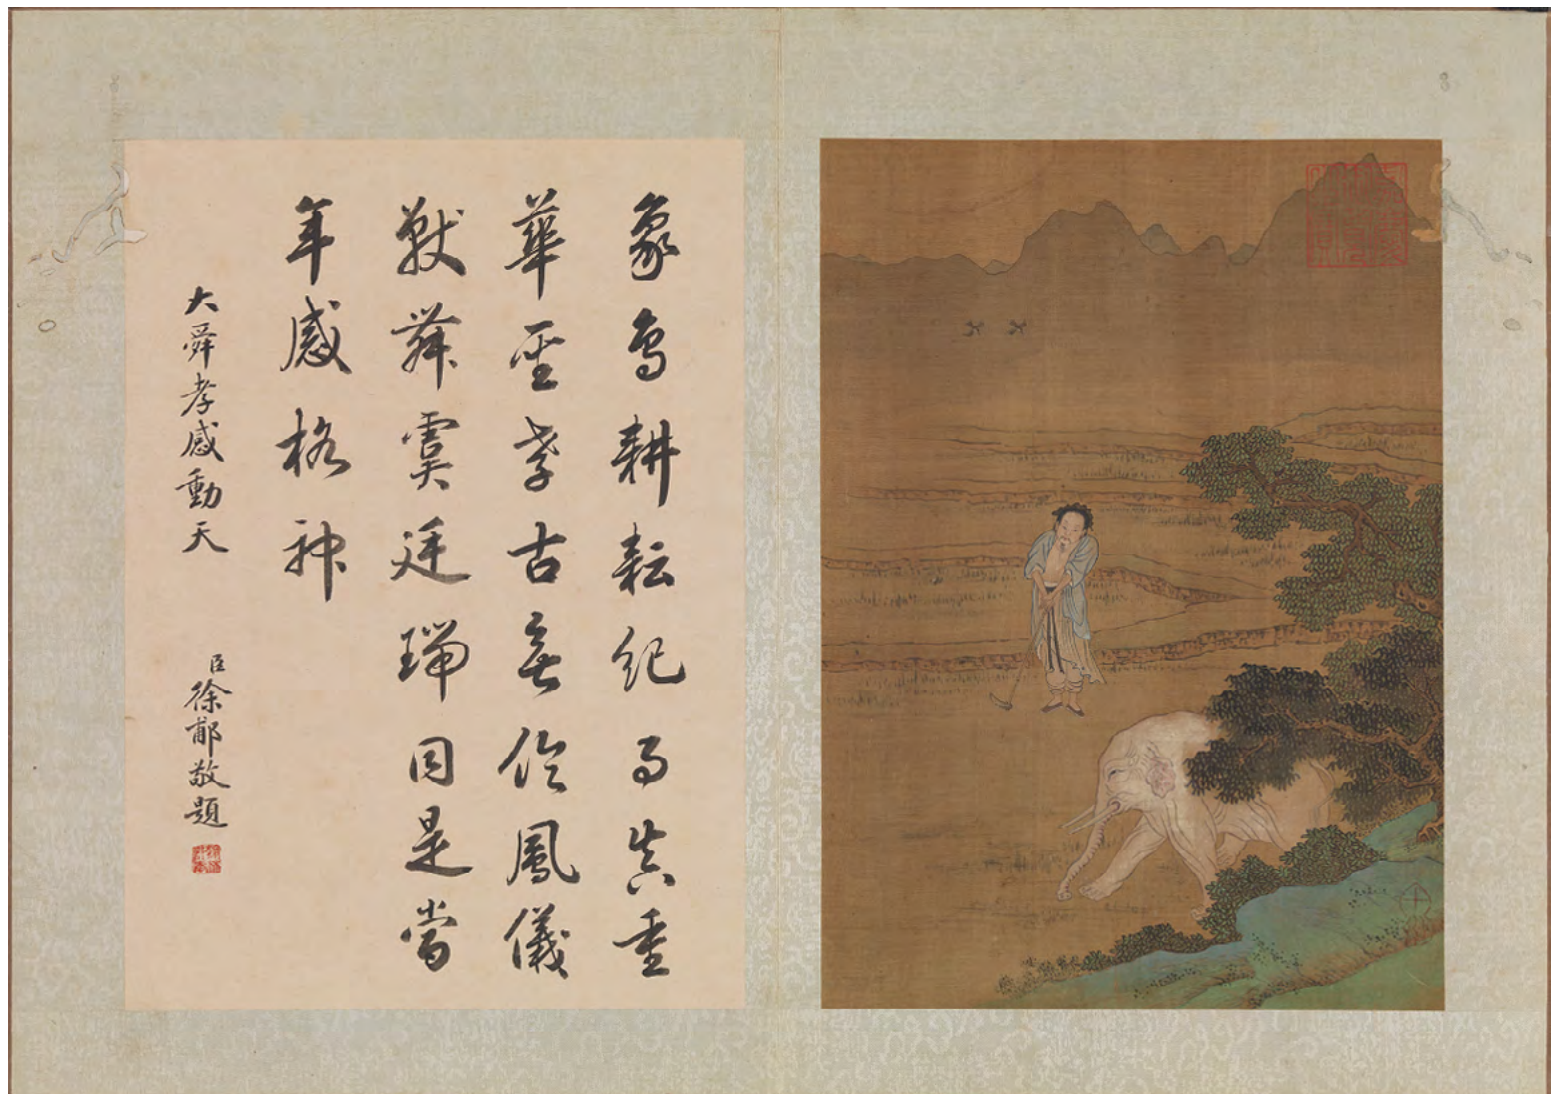 象鳥耕耘紀事真重
華聖孝古無倫鳳儀
獸舞虞廷瑞因是當
年感格神
大舜孝感動天
臣徐郙敬題